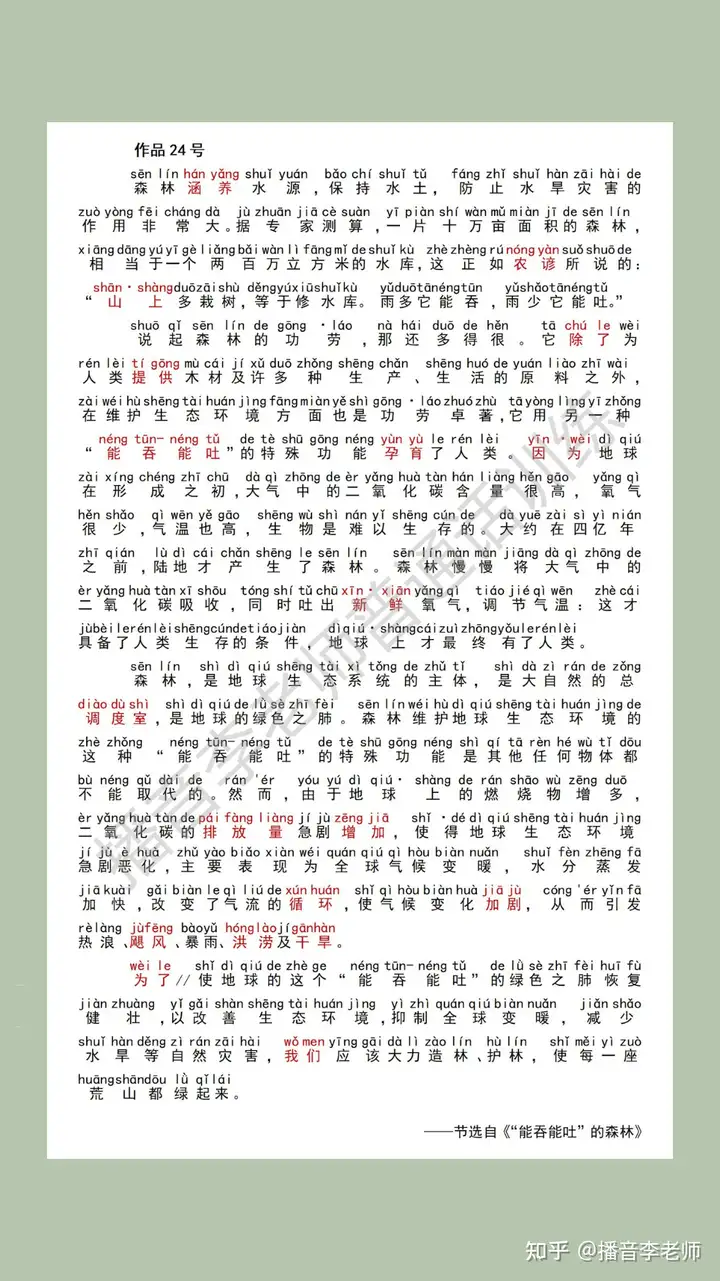 作品24号
sēn lín hán yǎng shuǐ yuán bǎo chí shuǐ tǔ fáng zhǐ shuǐ hàn zāi hài de
森林涵养水源，保持水土，防止水旱灾害的
zuò yòng fēi cháng dà jù zhuān jiā cè suàn yī piàn shí wàn mǔ miàn jī de sēn lín
作用非常大。据专家测算，一片十万亩面积的森林，
xiāng dāng yú yī gè liǎng bǎi wàn lì fāng mǐ de shuǐ kù zhè zhèng rú nóng yàn suǒ shuō de
相当于一个两百万立方米的水库，这正如农谚所说的：
shān·shàng duō zāi shù děng yú xiū shuǐ kù yǔ duō tā néng tūn yǔ shǎo tā néng tǔ
“山上多栽树，等于修水库。雨多它能吞，雨少它能吐。”
shuō qǐ sēn lín de gōng·láo nà hái duō de hěn tā chú le wèi
说起森林的功劳，那还多得很。它除了为
rén lèi tí gōng mù cái jí xǔ duō zhǒng shēng chǎn shēng huó de yuán liào zhī wài
人类提供木材及许多种生产、生活的原料之外，
zài wéi hù shēng tài huán jìng fāng miàn yě shì gōng·láo zhuó zhù tā yòng lìng yī zhǒng
在维护生态环境方面也是功劳卓著，它用另一种
néng tūn–néng tǔ de tè shū gōng néng yùn yù le rén lèi yīn·wèi dì qiú
“能吞能吐”的特殊功能孕育了人类。因为地球
zài xíng chéng zhī chū dà qì zhōng de èr yǎng huà tàn hán liàng hěn gāo yǎng qì
在形成之初，大气中的二氧化碳含量很高，氧气
hěn shǎo qì wēn yě gāo shēng wù shì nán yǐ shēng cún de dà yuē zài sì yì nián
很少，气温也高，生物是难以生存的。大约在四亿年
zhī qián lù dì cái chǎn shēng le sēn lín sēn lín màn màn jiāng dà qì zhōng de
之前，陆地才产生了森林。森林慢慢将大气中的
èr yǎng huà tàn xī shōu tóng shí tǔ chū xīn·xiān yǎng qì tiáo jié qì wēn zhè cái
二氧化碳吸收，同时吐出新鲜氧气，调节气温：这才
jù bèi le rén lèi shēng cún de tiáo jiàn dì qiú·shàng cái zuì zhōng yǒu le rén lèi
具备了人类生存的条件，地球上才最终有了人类。
sēn lín shì dì qiú shēng tài xì tǒng de zhǔ tǐ shì dà zì rán de zǒng
森林，是地球生态系统的主体，是大自然的总
diào dù shì shì dì qiú de lǜ sè zhī fèi sēn lín wéi hù dì qiú shēng tài huán jìng de
调度室，是地球的绿色之肺。森林维护地球生态环境的
zhè zhǒng néng tūn–néng tǔ de tè shū gōng néng shì qí tā rèn hé wù tǐ dōu
这种“能吞能吐”的特殊功能是其他任何物体都
bù néng qǔ dài de rán 'ér yóu yú dì qiú·shàng de rán shāo wù zēng duō
不能取代的。然而，由于地球上的燃烧物增多，
èr yǎng huà tàn de pái fàng liàng jí jù zēng jiā shǐ·dé dì qiú shēng tài huán jìng
二氧化碳的排放量急剧增加，使得地球生态环境
jí jù è huà zhǔ yào biǎo xiàn wéi quán qiú qì hòu biàn nuǎn shuǐ fèn zhēng fā
急剧恶化，主要表现为全球气候变暖，水分蒸发
jiā kuài gǎi biàn le qì liú de xún huán shǐ qì hòu biàn huà jiā jù cóng 'ér yǐn fā
加快，改变了气流的循环，使气候变化加剧，从而引发
rè làng jù fēng bào yǔ hóng lào jí gān hàn
热浪、飓风、暴雨、洪涝及干旱。
wèi le shǐ dì qiú de zhè ge néng tūn–néng tǔ de lǜ sè zhī fèi huī fù
为了//使地球的这个“能吞能吐”的绿色之肺恢复
jiàn zhuàng yǐ gǎi shàn shēng tài huán jìng yì zhì quán qiú biàn nuǎn jiǎn shǎo
健壮，以改善生态环境，抑制全球变暖，减少
shuǐ hàn děng zì rán zāi hài wǒ men yīng gāi dà lì zào lín hù lín shǐ měi yī zuò
水旱等自然灾害，我们应该大力造林、护林，使每一座
huāng shān dōu lǜ qǐ lái
荒山都绿起来。
——节选自《“能吞能吐”的森林》
播音李老师普通话训练
知乎 @播音李老师